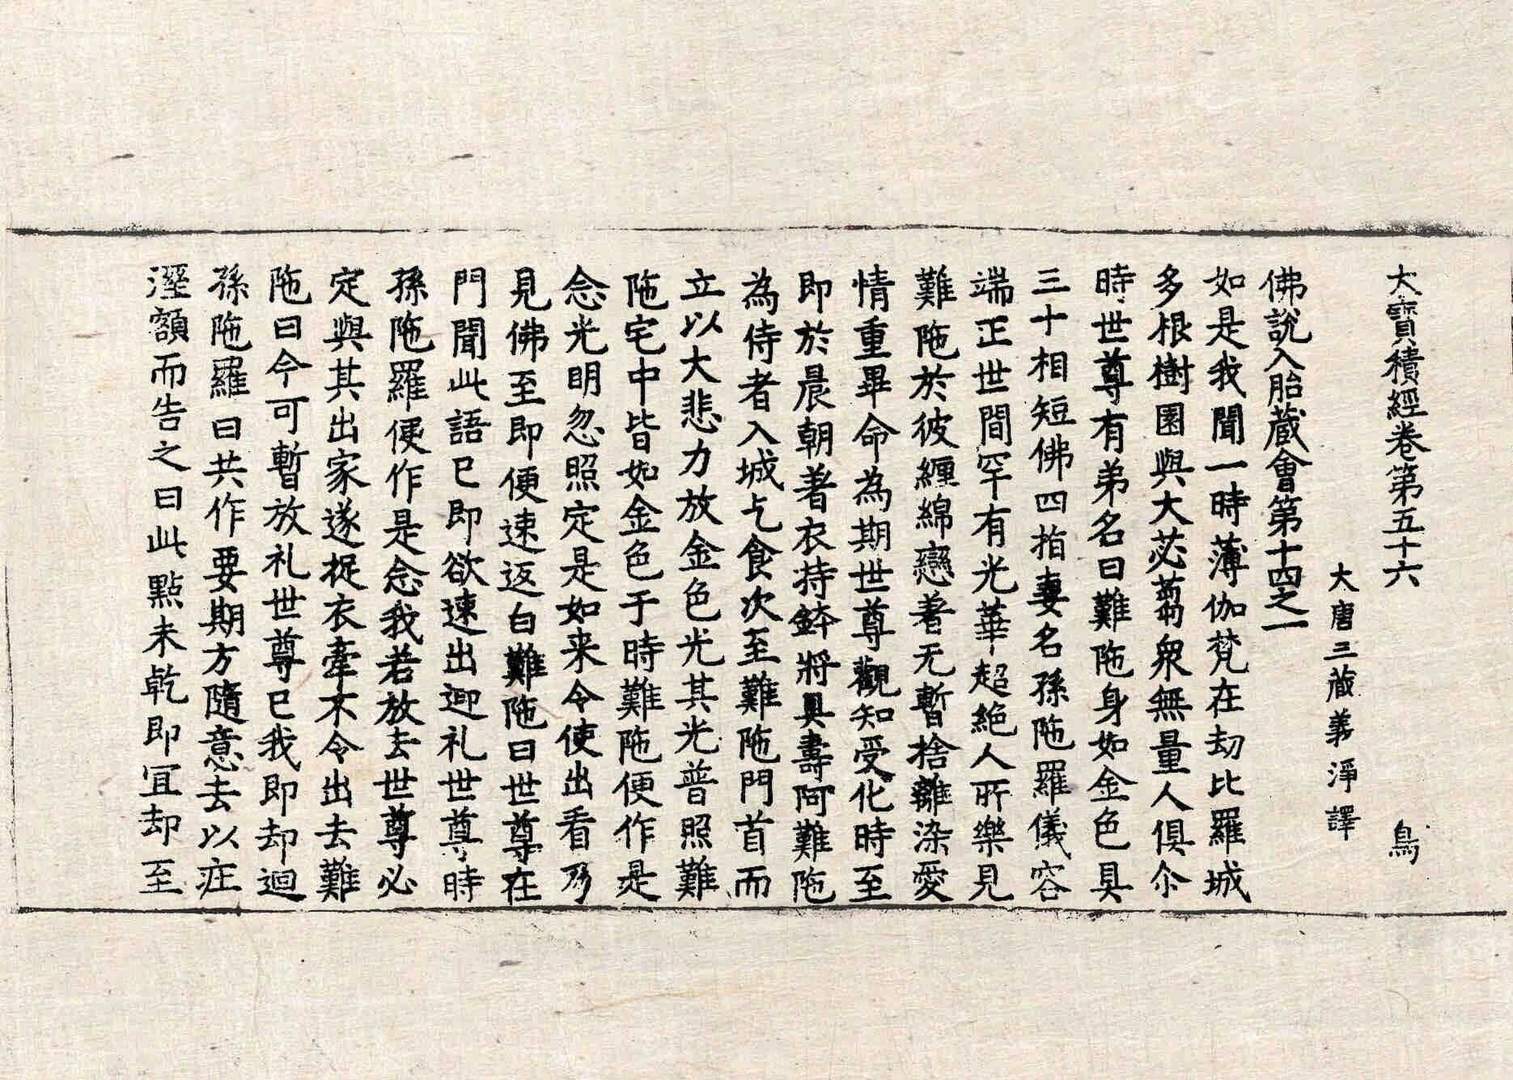 大寶積經卷第五十六 鳥
大唐三藏義淨譯
佛說入胎藏會第十四之一
如是我聞一時薄伽梵在劫比羅城
多根樹園與大苾蒭眾無量人俱尒
時世尊有弟名曰難陁身如金色具
三十相短佛四指妻名孫陁羅儀容
端正世間罕有光華超絕人所樂見
難陁於彼纏綿戀著无暫捨離染愛
情重畢命為期世尊觀知受化時至
即於晨朝著衣持鉢將具壽阿難陁
為侍者入城乞食次至難陁門首而
立以大悲力放金色光其光普照難
陁宅中皆如金色于時難陁便作是
念光明忽照定是如来令使出看乃
見佛至即便速返白難陁曰世尊在
門聞此語已即欲速出迎礼世尊時
孫陁羅便作是念我若放去世尊必
定與其出家遂捉衣牽不令出去難
陁曰今可暫放礼世尊已我即却迴
孫陁羅曰共作要期方隨意去以庄
溼額而告之曰此點未乾即宜却至